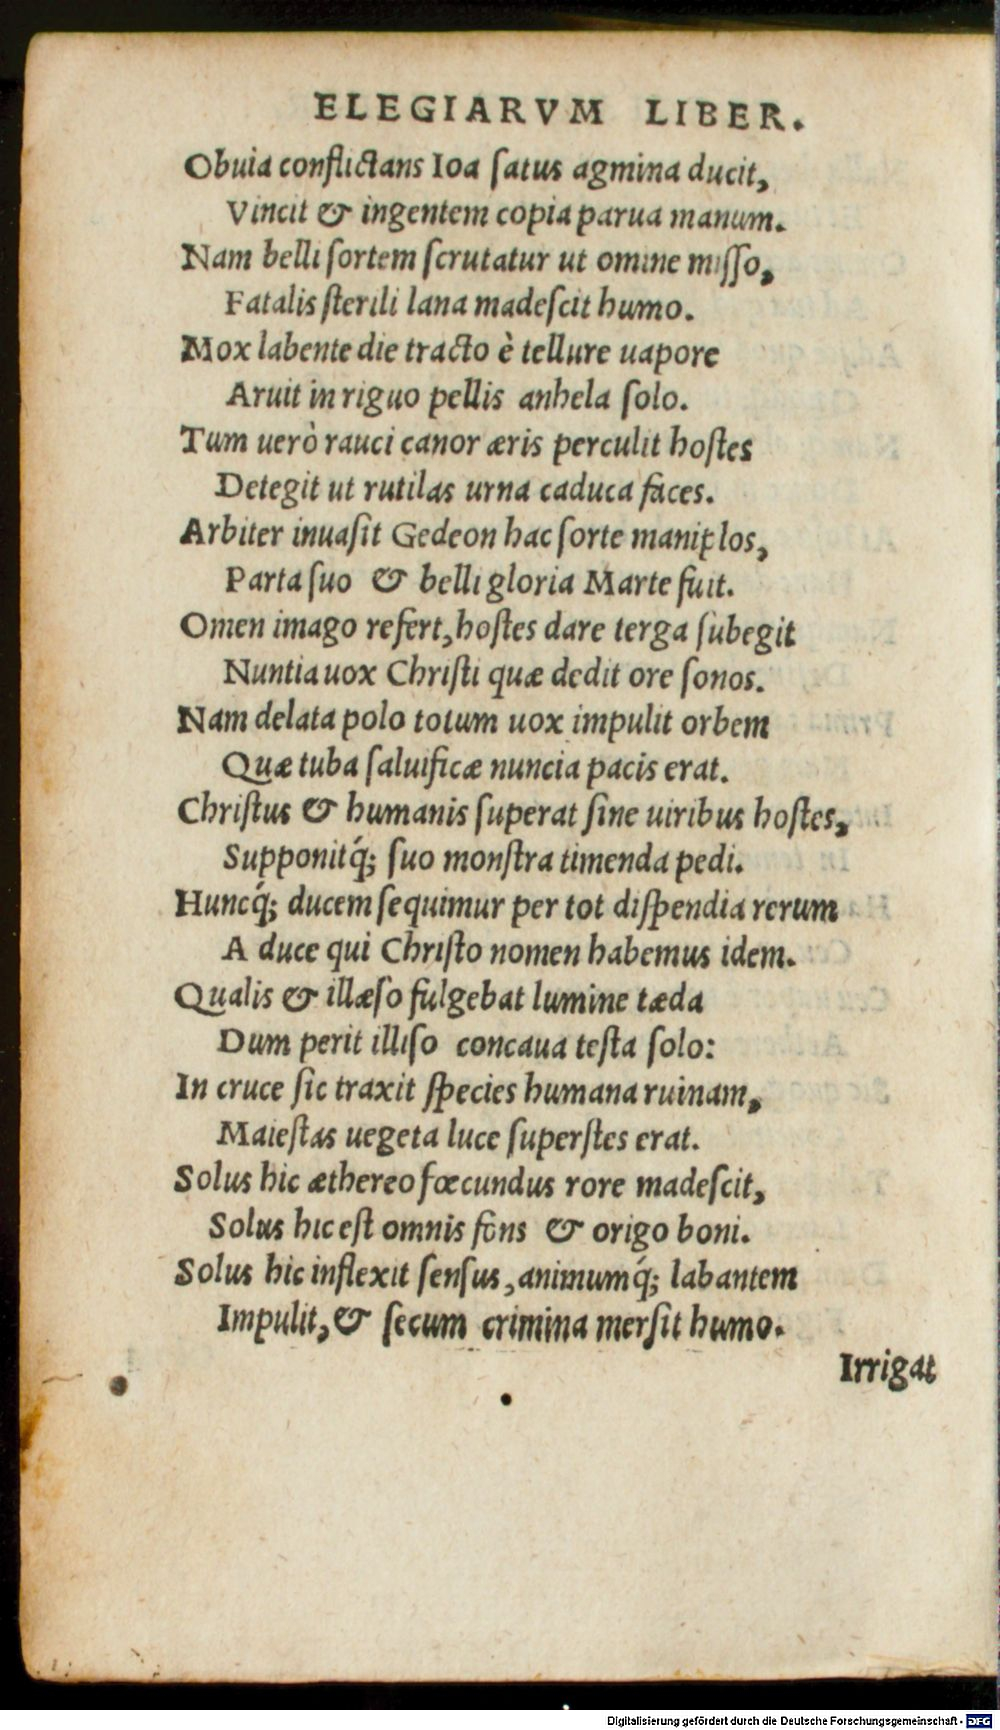 ELEGIARVM LIBER.
Obuia conflictans Ioa ſatus agmina ducit,
Vincit & ingentem copia parua manum.
Nam belli ſortem ſcrutatur ut omine miſſo,
Fatalis ſterili lana madeſcit humo.
Mox labente die tracto è tellure uapore
Aruit in riguo pellis anhela ſolo.
Tum uerò rauci canor æris perculit hoſtes
Detegit ut rutilas urna caduca faces.
Arbiter inuaſit Gedeon hac ſorte maniplos,
Parta ſuo & belli gloria Marte fuit.
Omen imago refert, hoſtes dare terga ſubegit
Nuntia uox Chriſti quæ dedit ore ſonos.
Nam delata polo totum uox impulit orbem
Quæ tuba ſaluificæ nuncia pacis erat.
Chriſtus & humanis ſuperat ſine uiribus hoſtes,
Supponitq́; ſuo monſtra timenda pedi.
Huncq́; ducem ſequimur per tot diſpendia rerum
A duce qui Chriſto nomen habemus idem.
Qualis & illæſo fulgebat lumine tæda
Dum perit illiſo concaua teſta ſolo:
In cruce ſic traxit ſpecies humana ruinam,
Maieſtas uegeta luce ſuperſtes erat.
Solus hic æthereo fœcundus rore madeſcit,
Solus hic eſt omnis fons & origo boni.
Solus hic inflexit ſenſus, animumq́; labantem
Impulit, & ſecum crimina merſit humo.
Irrigat
Digitalisierung gefördert durch die Deutsche Forschungsgemeinschaft - DFG